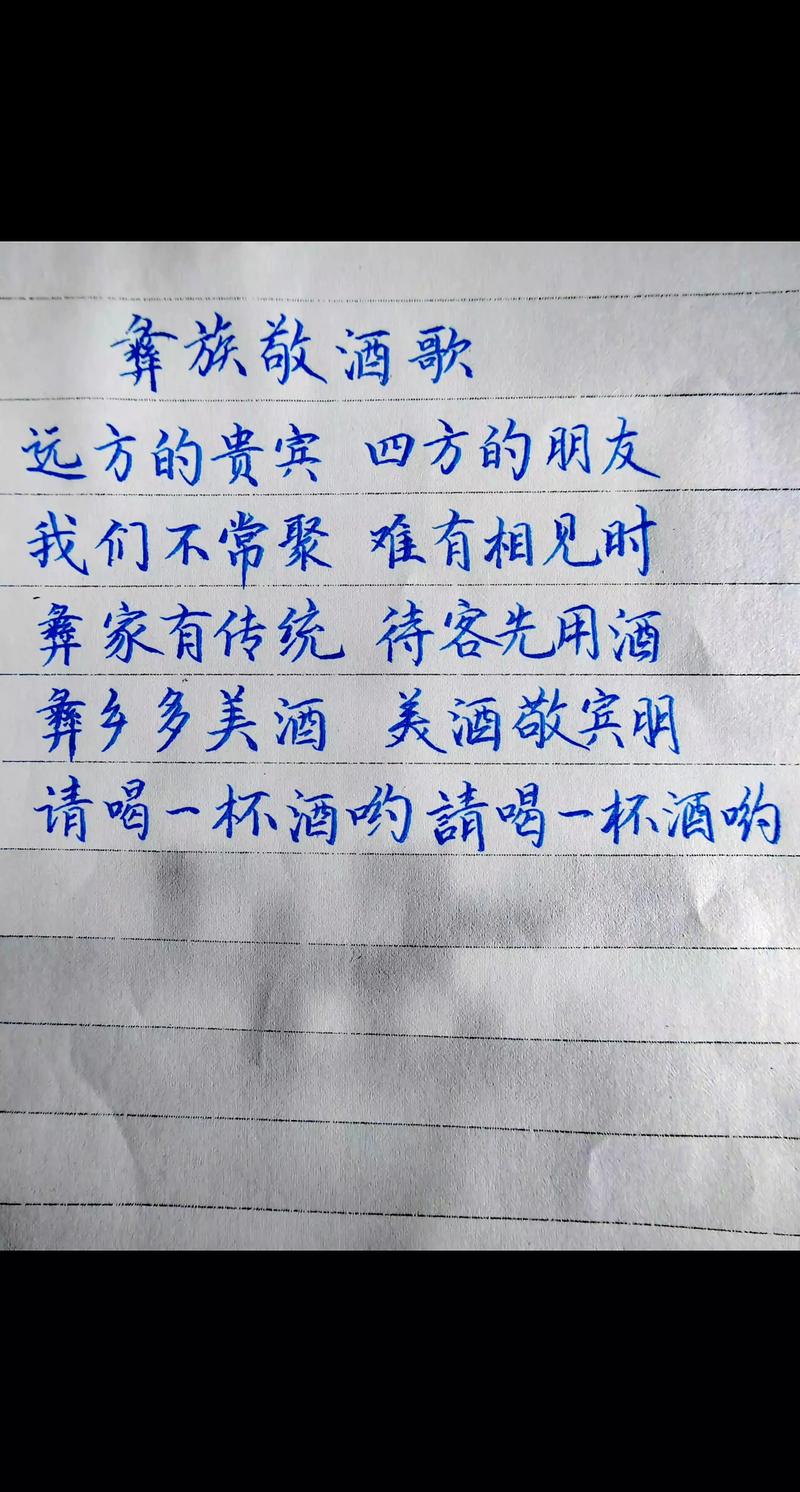 彝族敬酒歌
远方的贵宾 四方的朋友
我们不常聚 难有相见时
彝家有传统 待客先用酒
彝乡多美酒 美酒敬宾朋
请喝一杯酒哟 請喝一杯酒哟